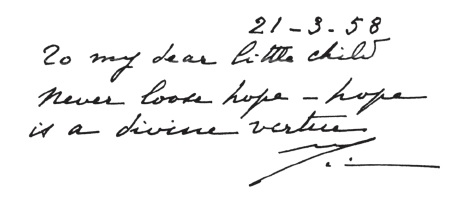 21-3-58
To my dear little child
Never loose hope - hope
is a divine vertue